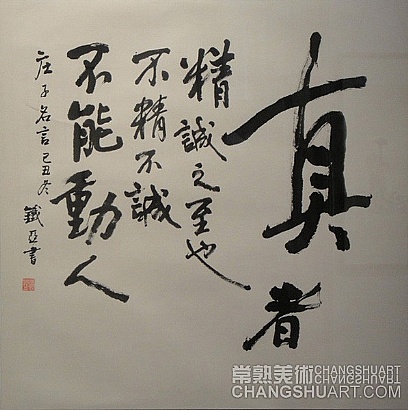 真者
精誠之至也
不精不誠
不能動人
庄子名言己丑冬
鐵亞書
常熟美術 CHANGSHUART
CHANGSHUART.COM